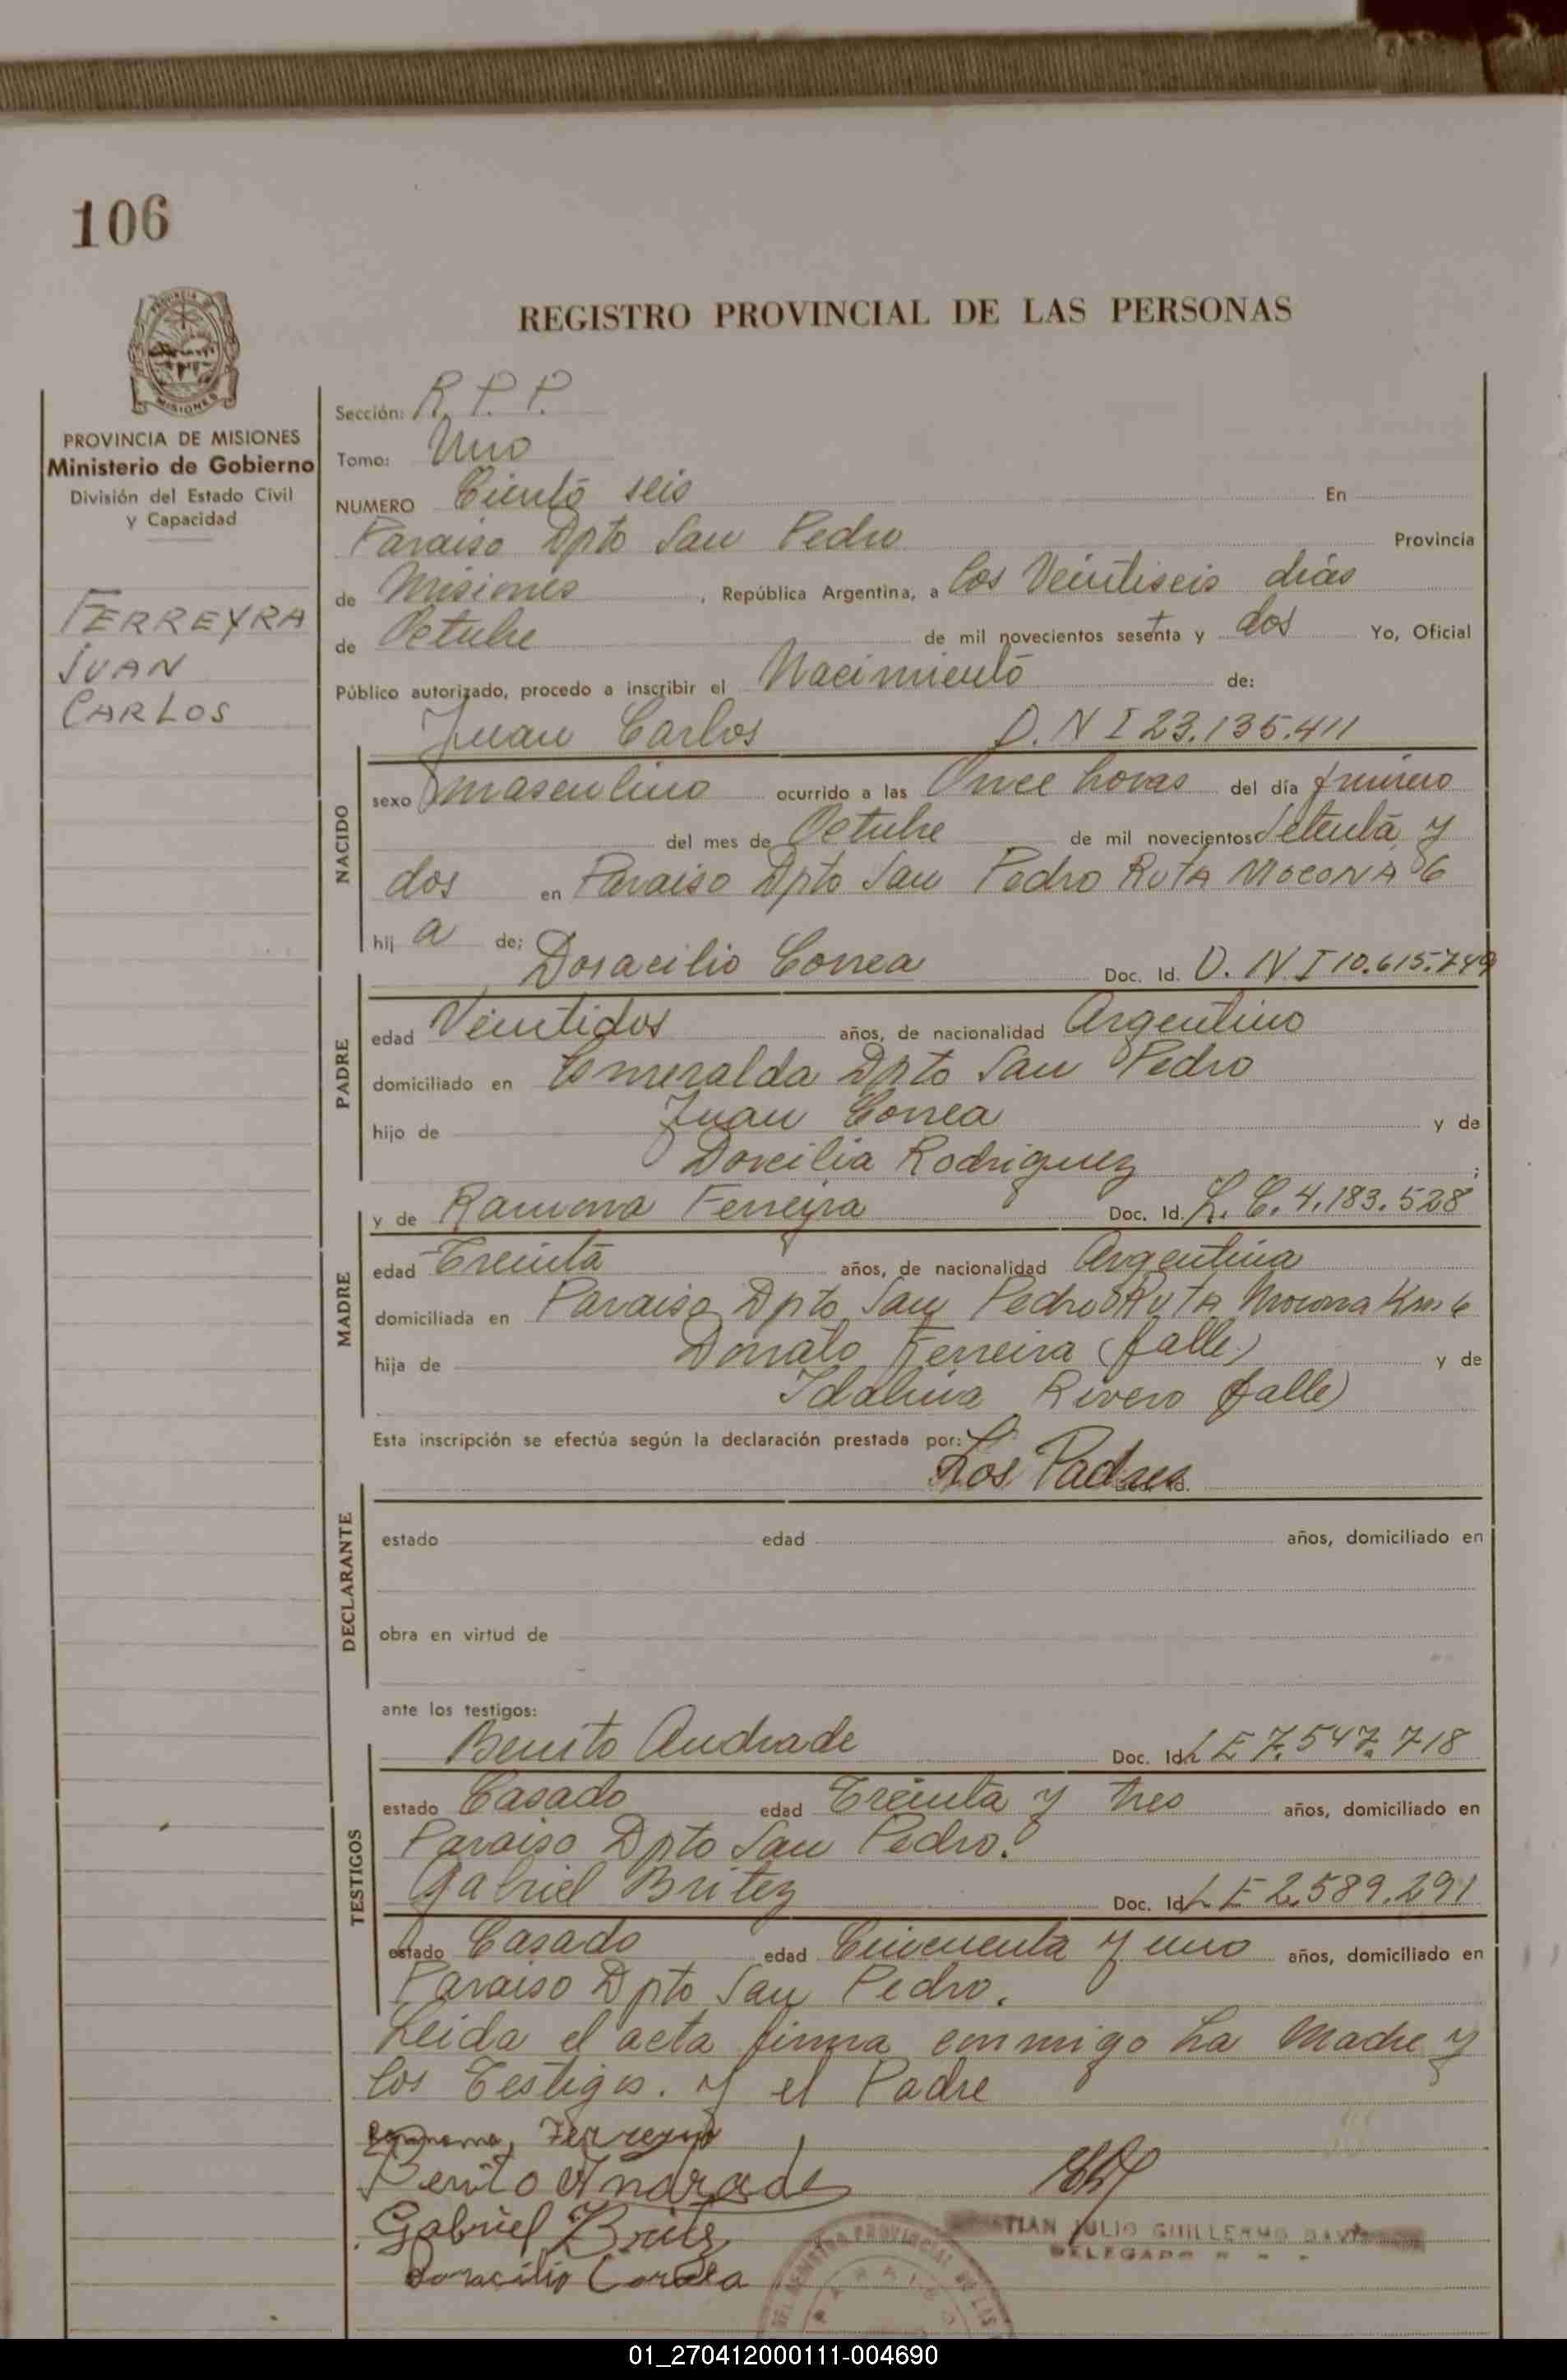 106
REGISTRO PROVINCIAL DE LAS PERSONAS
PROVINCIA DE MISIONES
Ministerio de Gobierno
División del Estado Civil
y Capacidad
FERREYRA
JUAN
CARLOS
Sección: R. P. P.
Tomo: Uno
NUMERO Ciento seis En
Paraiso Dpto San Pedro Provincia
de Misiones, República Argentina, a los Veintiseis dias
de Octubre de mil novecientos sesenta y dos Yo, Oficial
Público autorizado, procedo a inscribir el Nacimiento de:
Juan Carlos D. N I 23.135.411
NACIDO
sexo masculino ocurrido a las Once horas del día primero
del mes de Octubre de mil novecientos setenta y
dos en Paraiso Dpto San Pedro RUTA MOCONA 6
hij a de: Doracilio Correa Doc. Id. D. N. I 10.615.749
PADRE
edad Veintidos años, de nacionalidad Argentino
domiciliado en Esmeralda Dpto San Pedro
hijo de Juan Correa y de
Dorcilia Rodriguez ;
y de Ramona Ferreyra Doc. Id. L. C. 4.183.528
MADRE
edad Treinta años, de nacionalidad Argentina
domiciliada en Paraiso Dpto San Pedro RUTA Mocona Km 6
hija de Donato Ferreira (falle) y de
Idalina Rivero (falle)
Esta inscripción se efectúa según la declaración prestada por:
Los Padres
DECLARANTE
estado edad años, domiciliado en
obra en virtud de
ante los testigos:
Benito Andrade Doc. Id. L E 7.547.718
TESTIGOS
estado Casado edad Treinta y tres años, domiciliado en
Paraiso Dpto San Pedro.
Gabriel Britez Doc. Id. L E 2.589.291
estado Casado edad Cincuenta y uno años, domiciliado en
Paraiso Dpto San Pedro.
Leida el acta firma conmigo La Madre y
los Testigos. y el Padre
Ramona Ferreyra
Benito Andrade
Gabriel Britez
Doracilio Correa
JULIO GUILLERMO
DELEGADO
REGISTRO PROVINCIAL DE LAS
01_270412000111-004690